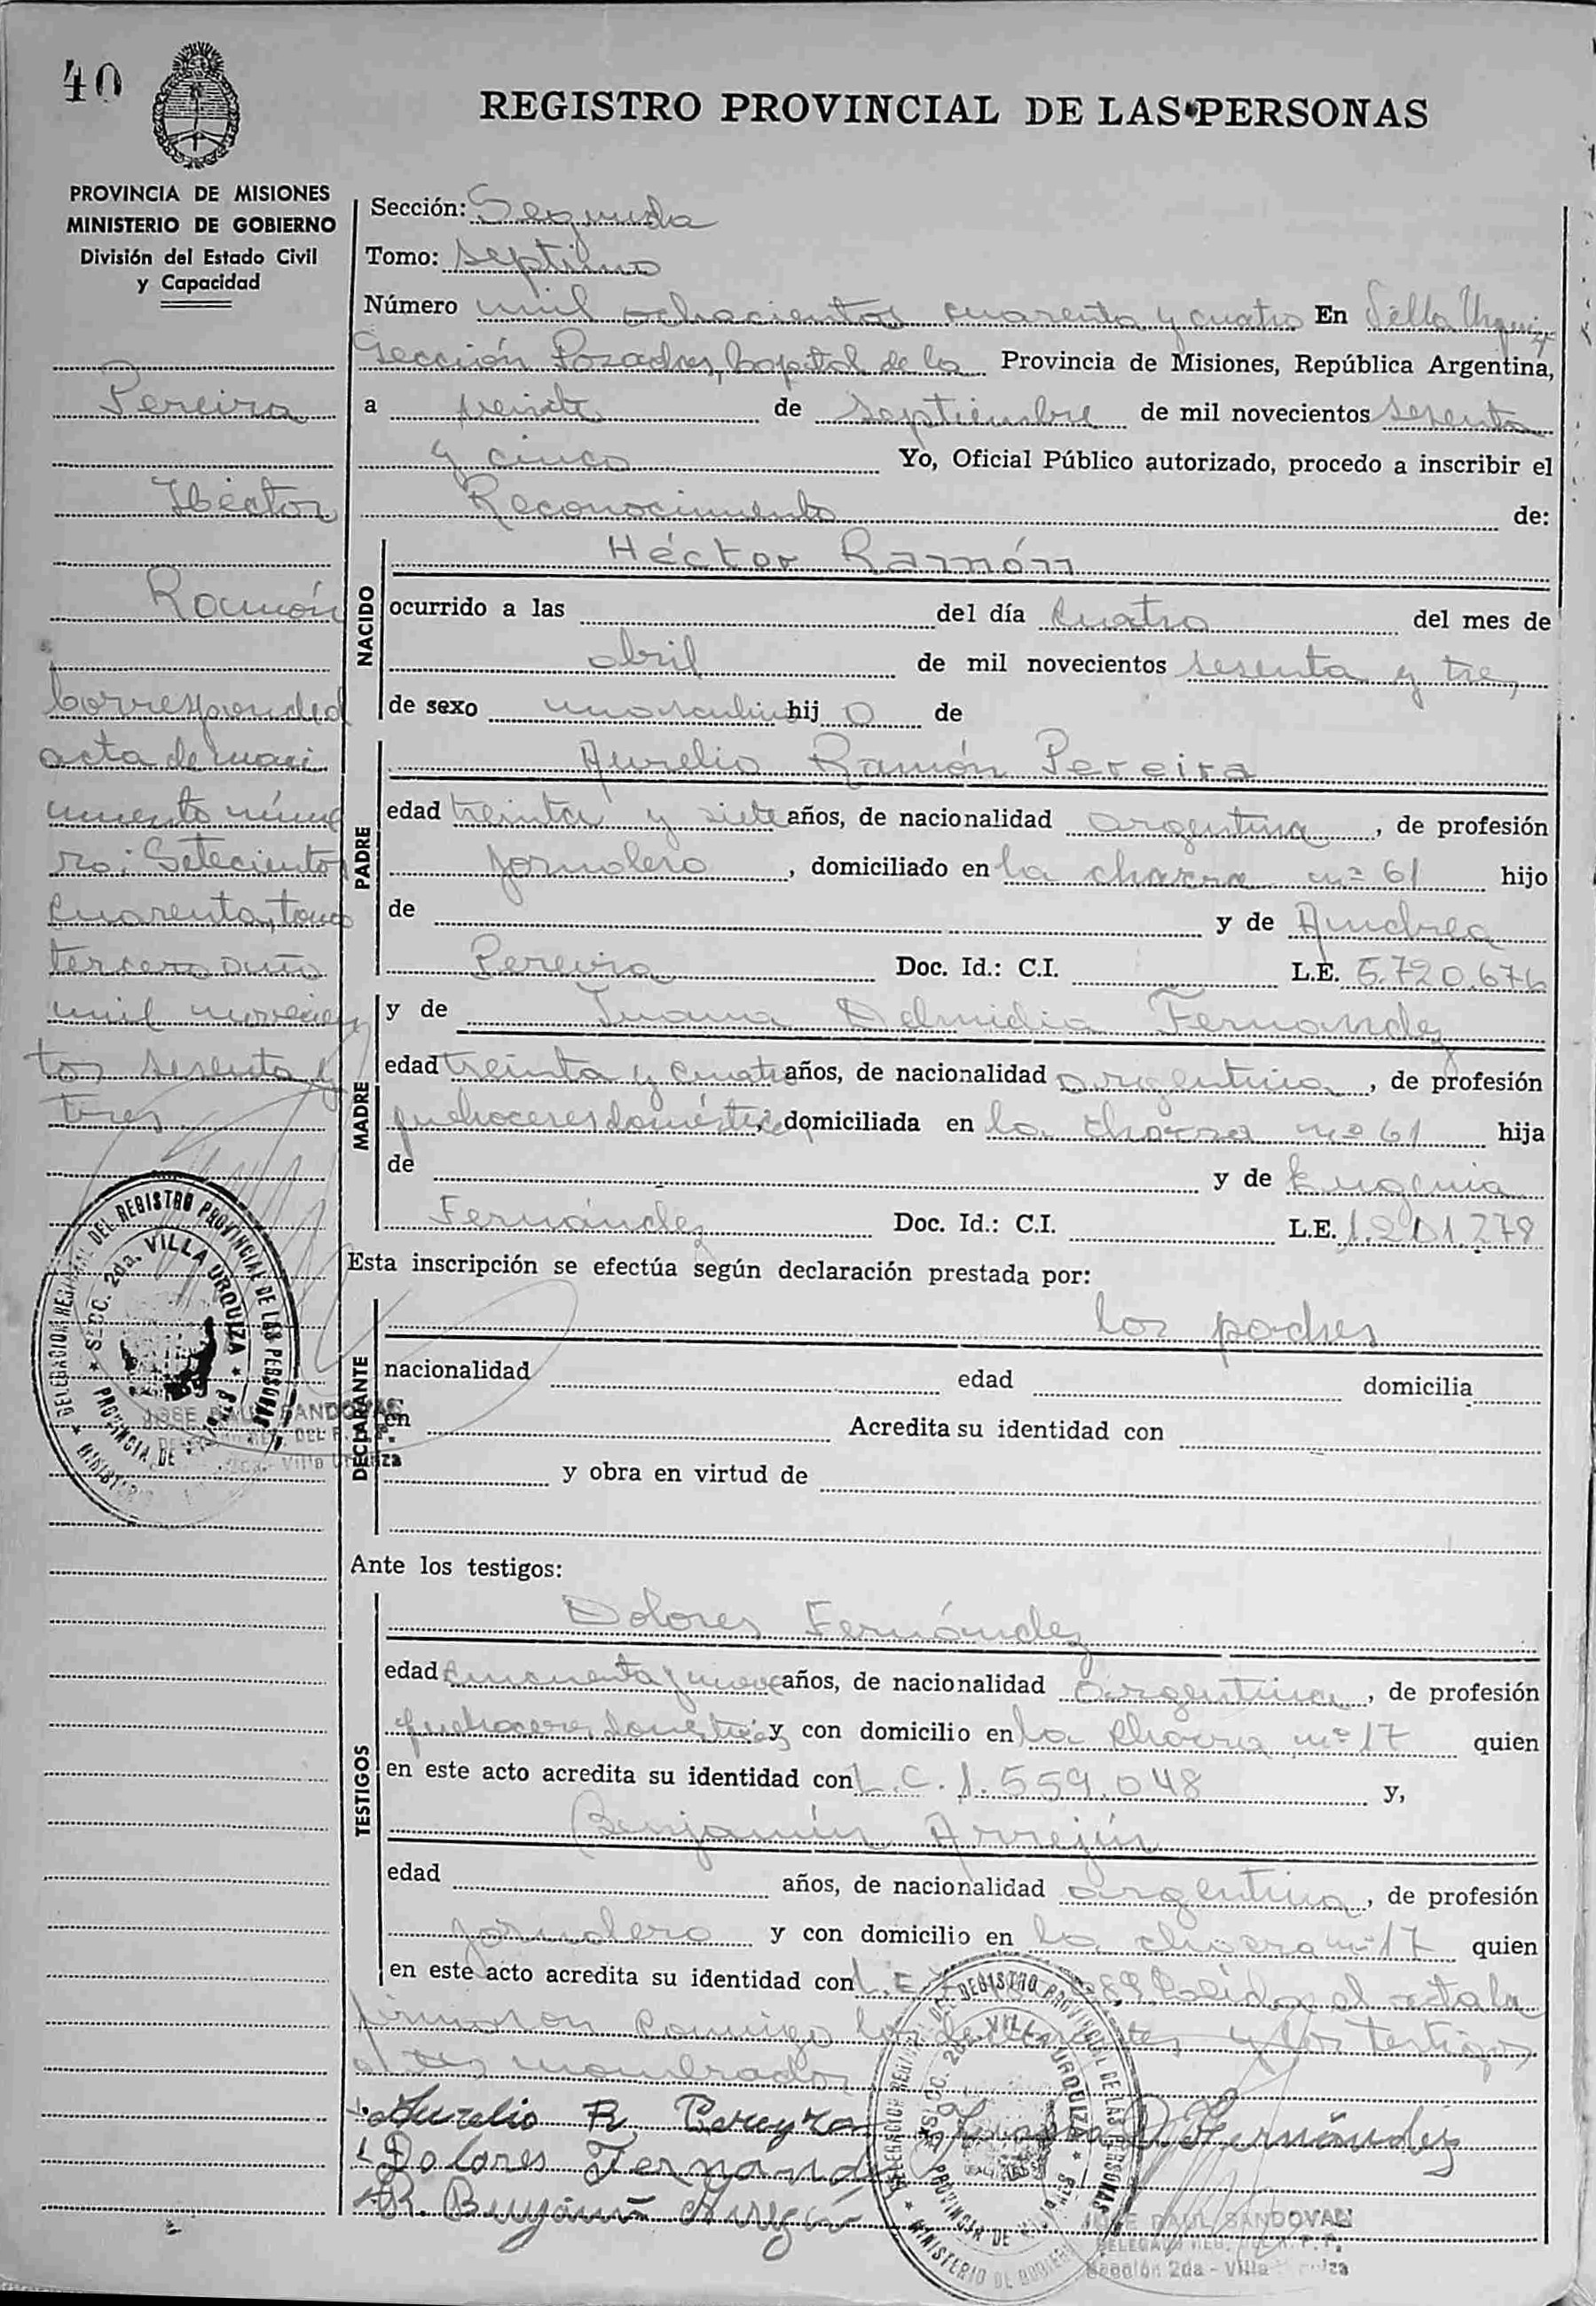 40
REGISTRO PROVINCIAL DE LAS PERSONAS
PROVINCIA DE MISIONES
MINISTERIO DE GOBIERNO
División del Estado Civil
y Capacidad
Pereira
Héctor
Ramón
Corresponded
acta de naci
miento núme
ro: Setecientos
Cuarenta, tomo
tercero año
mil novecien
tos sesenta y
tres
Sección: Segunda
Tomo: septimo
Número mil ochocientos cuarenta y cuatro En Villa Urquiza
Sección Posadas, Capital de la Provincia de Misiones, República Argentina,
a veinte de septiembre de mil novecientos sesenta
y cinco Yo, Oficial Público autorizado, procedo a inscribir el
Reconocimiento de:
NACIDO
Héctor Ramón
ocurrido a las del día cuatro del mes de
abril de mil novecientos sesenta y tres
de sexo masculino hij o de
PADRE
Aurelio Ramón Pereira
edad treinta y siete años, de nacionalidad argentina, de profesión
jornalero, domiciliado en la chacra nº 61 hijo
de y de Andrea
Pereira Doc. Id.: C.I. L.E. 5.720.676
MADRE
y de Juana Delmidia Fernandez
edad treinta y cuatro años, de nacionalidad argentina, de profesión
quehaceres domésticos, domiciliada en la chacra nº 61 hija
de y de Eugenia
Fernández Doc. Id.: C.I. L.E. 1.201.278
Esta inscripción se efectúa según declaración prestada por:
DECLARANTE
los padres
nacionalidad edad domicilia
en Acredita su identidad con
y obra en virtud de
Ante los testigos:
TESTIGOS
Dolores Fernández
edad cincuenta y nueve años, de nacionalidad argentina, de profesión
quehaceres domésticos y con domicilio en la chacra nº 17 quien
en este acto acredita su identidad con L.C. 1.559.048 y,
Benjamín Arrejín
edad años, de nacionalidad argentina, de profesión
jornalero y con domicilio en la chacra nº 17 quien
en este acto acredita su identidad con L.E. 89 Leida el acta la
firmaron conmigo los declarantes y los testigos
antes nombrados
Aurelio R. Pereyra Juana D Fernández
Dolores Fernand
R. Benjamín
DELEGACION REGIONAL DEL REGISTRO PROVINCIAL DE LAS PERSONAS
SECC. 2da. VILLA URQUIZA
PROVINCIA DE
JOSE RAUL SANDOVAL
DELEGACION REGIONAL DEL REGISTRO PROVINCIAL DE LAS PERSONAS
SECC. 2da. VILLA URQUIZA
PROVINCIA DE
MINISTERIO DE GOBIERNO
JOSE RAUL SANDOVAL
DELEGADO REG. DEL R. P. P.
Sección 2da - Villa